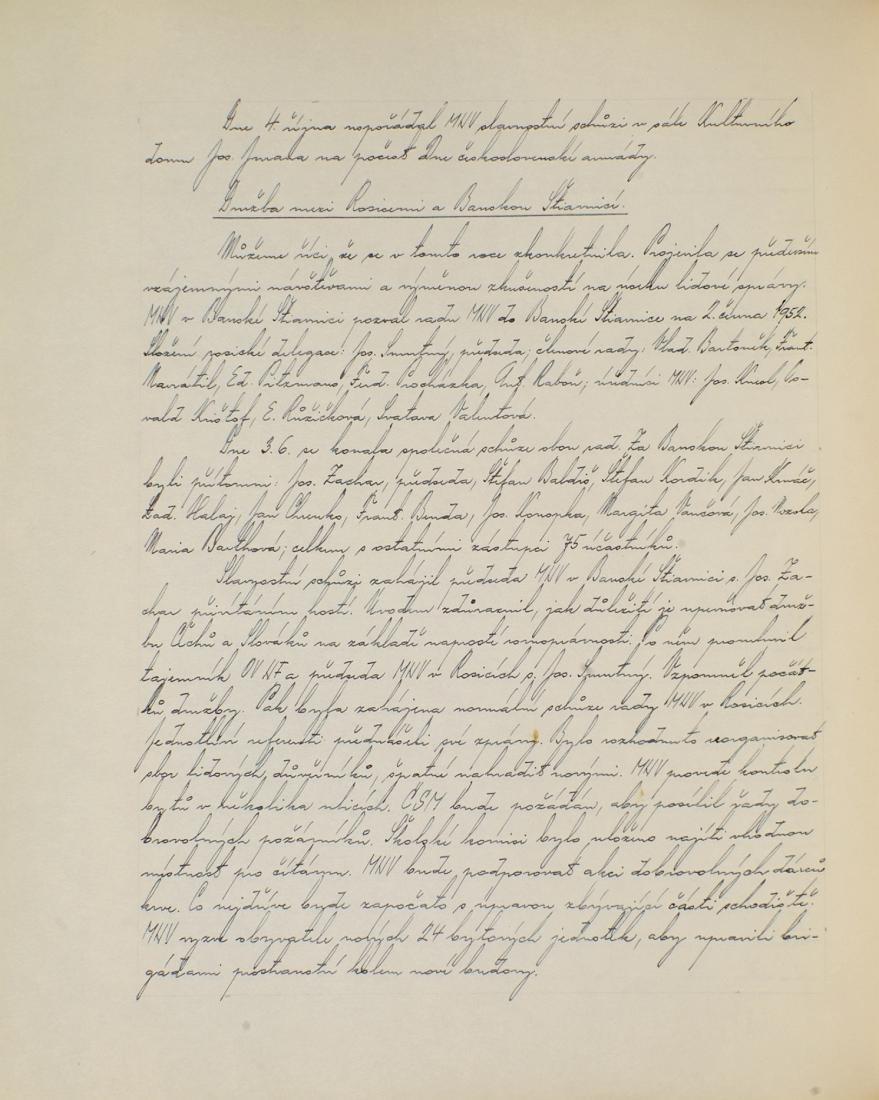 Dne 4. října uspořádal MNV slavnostní schůzi v sále Kulturního
domu Jos. Jurana na počest Dne československé armády.
Družba mezi Rosicemi a Banskou Štiavnicí.
Můžeme říci, že se v tomto roce zkonkretnila. Projevila se především
vzájemnými návštěvami a výměnou zkušeností na úseku lidové správy.
MNV v Banské Štiavnici pozval radu MNV do Banské Štiavnice na 2. června 1952.
Složení rosické delegace: Jos. Smutný, předseda; členové rady: Vlad. Bartoněk, Frant.
Navrátil, Ed. Pitzmann, Ferd. Procházka, Ant. Raboň; úředníci MNV: Jos. Kusl, Os-
vald Krištof, E. Růžičková, Svatava Valentová.
Dne 3.6. se konala společná schůze obou rad. Za Banskou Štiavnici
byli přítomni: Jos. Zachar, předseda, Štefan Baldiš, Štefan Kordik, Jan Kmáč,
Lad. Halaj, Jan Chrenko, Frant. Benda, Jos. Konopka, Margita Vančová, Jos. Kozola,
Maria Barthová; celkem s ostatními zástupci 75 účastníků.
Slavnostní schůzi zahájil předseda MNV v Banské Štiavnici s. Jos. Za-
char přivítáním hostí. Úvodem zdůraznil, jak důležité je upevňovat druž-
bu Čechů a Slováků na základě naprosté rovnoprávnosti. Po něm promluvil
tajemník OV NF a předseda MNV v Rosicích s. Jos. Smutný. Vzpomněl počát-
ků družby. Pak byla zahájena normální schůze rady MNV v Rosicích.
Jednotliví referenti přednášeli své zprávy. Bylo rozhodnuto reorganisovat
sbor lidových důvěrníků, špatné nahradit novými. MNV provede kontrolu
bytů v několika ulicích. ČSM bude požádán, aby posílil řady do-
brovolných požárníků. Školské komisi bylo uloženo najíti vhodnou
místnost pro čítárnu. MNV bude podporovat akci dobrovolných dárců
krve. Co nejdříve bude započato s úpravou zbývající části schodiště.
MNV vyzve obyvatele nových 24 bytových jednotek, aby upravili bri-
gádami prostranství kolem nové budovy.